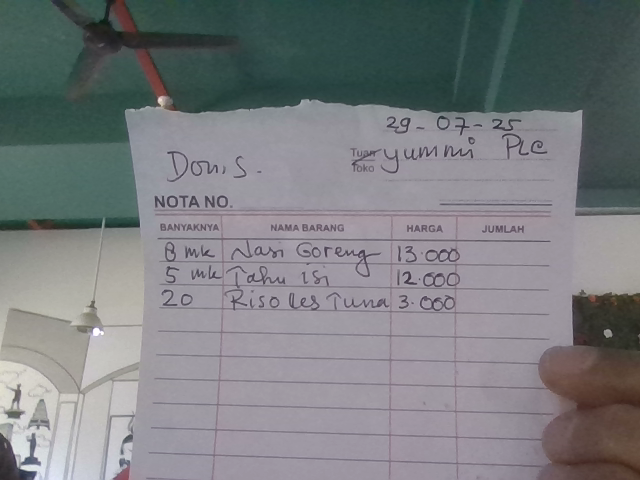 29-07-25
Tuan yummi PLC
Toko
Don.s.
NOTA NO.
BANYAKNYA NAMA BARANG HARGA JUMLAH
8 mk Nasi Goreng 13.000
5 mk Tahu isi 12.000
20 Risoles Tuna 3.000